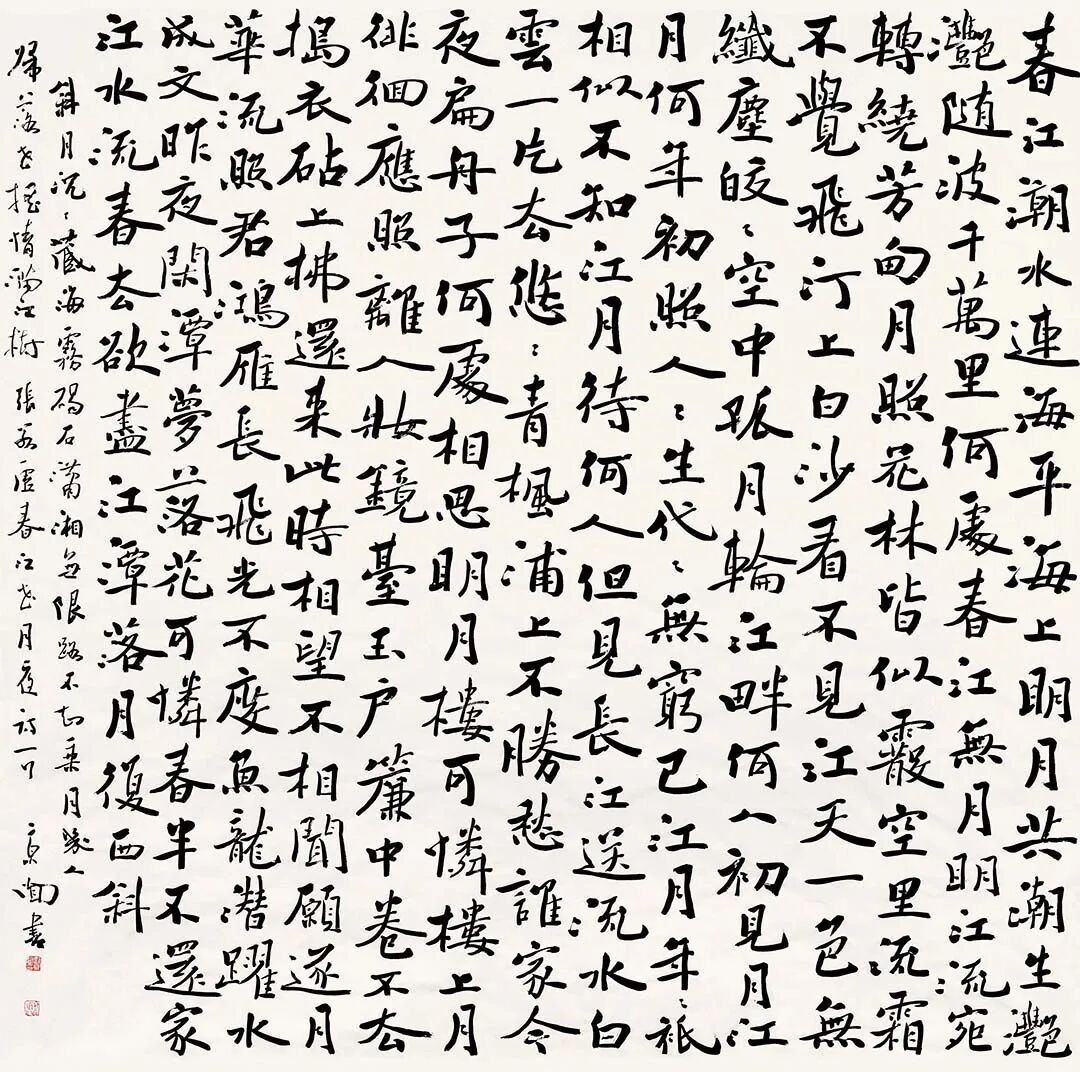 春江潮水連海平海上明月共潮生灩
灩随波千萬里何處春江無月明江流宛
轉繞芳甸月照花林皆似霰空里流霜
不覺飛汀上白沙看不見江天一色無
纖塵皎〻空中孤月輪江畔何人初見月江
月何年初照人〻生代〻無窮已江月年〻祇
相似不知江月待何人但見長江送流水白
雲一片去悠〻青楓浦上不勝愁誰家今
夜扁舟子何處相思明月樓可憐樓上月
徘徊應照離人妝鏡臺玉户簾中卷不去
搗衣砧上拂還来此時相望不相聞願逐月
華流照君鴻雁長飛光不度魚龍潛躍水
成文昨夜閑潭夢落花可憐春半不還家
江水流春去欲盡江潭落月復西斜
斜月沉〻藏海霧碣石瀟湘無限路不知乘月幾人
歸落花摇情滿江樹 張若虛春江花月夜詩一 書